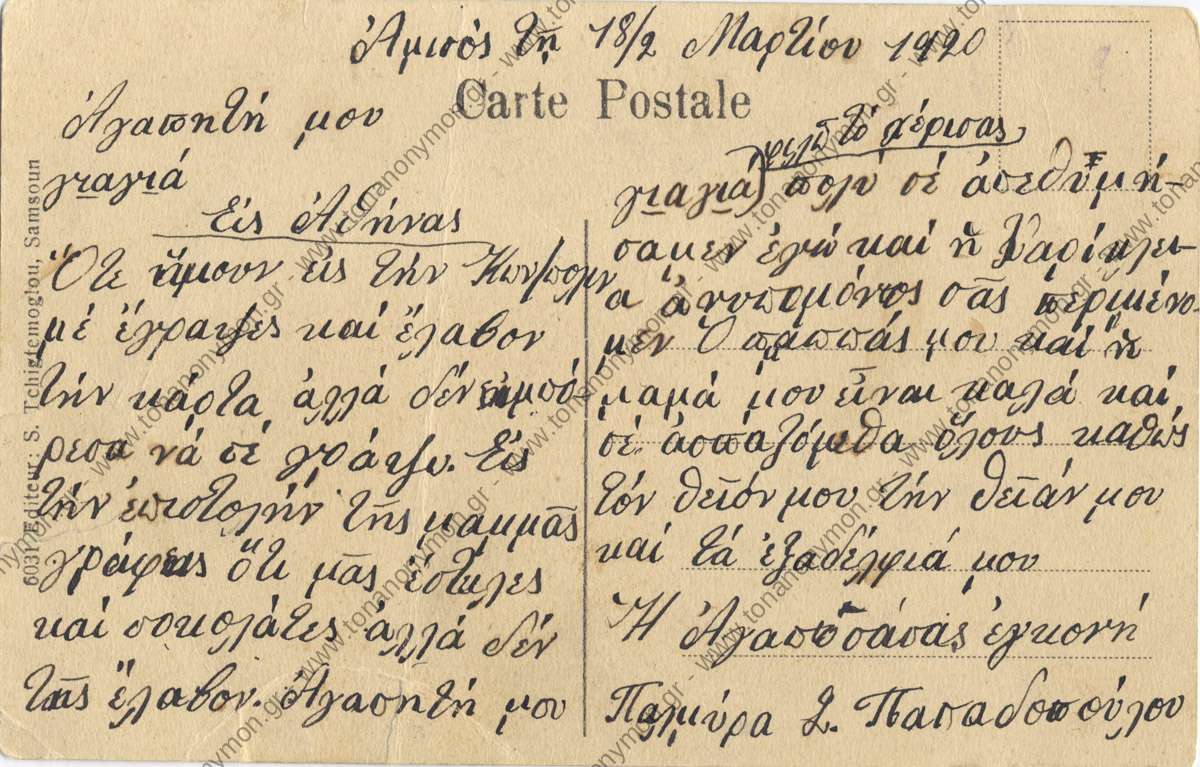 Ἀμισὸς τῇ 18/2 Μαρτίου 1920
Carte Postale
Ἀγαπητή μου
γιαγιά
Εἰς Ἀθήνας
Ὅτε ἤμουν εἰς τὴν Κων/πολιν
μέ ἔγραψες καί ἔλαβον
τήν κάρτα ἀλλά δέν ἐμπό
ρεσα νά σέ γράψω. Εἰς
τήν ἐπιστολήν τῆς μαμμᾶς
γράφεις ὅτι μᾶς ἔστιλες
καί σοκολάτες ἀλλά δέν
τᾶς ἔλαβον. Ἀγαπητή μου
τό χέρισας
γιαγιά πολύ σέ ἀπεθυμή-
σαμεν ἐγώ καί ἡ Χαρίκλει-
α ἀνυπομόνος σᾶς περιμένο-
μεν Ὁ παππάς μου καί ἡ
μαμά μου εἶναι καλά καί
σέ ἀσπαζόμεθα ὅλους καθώς
τόν θεῖόν μου τήν θεῖάν μου
καί τά ἐξαδέλφιά μου
Ἡ Ἀγαποσάσας ἐγκονή
Παλμύρα Σ. Παπαδοπούλου
6031 Editeur: S. Tchigtemoglou, Samsoun
www.tonanonymon.gr